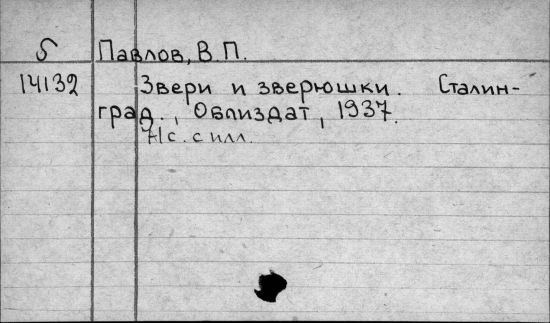 Б Павлов, В.П.
14132 Звери и зверюшки. Сталин-
град., Облиздат, 1937.
71с. с илл.